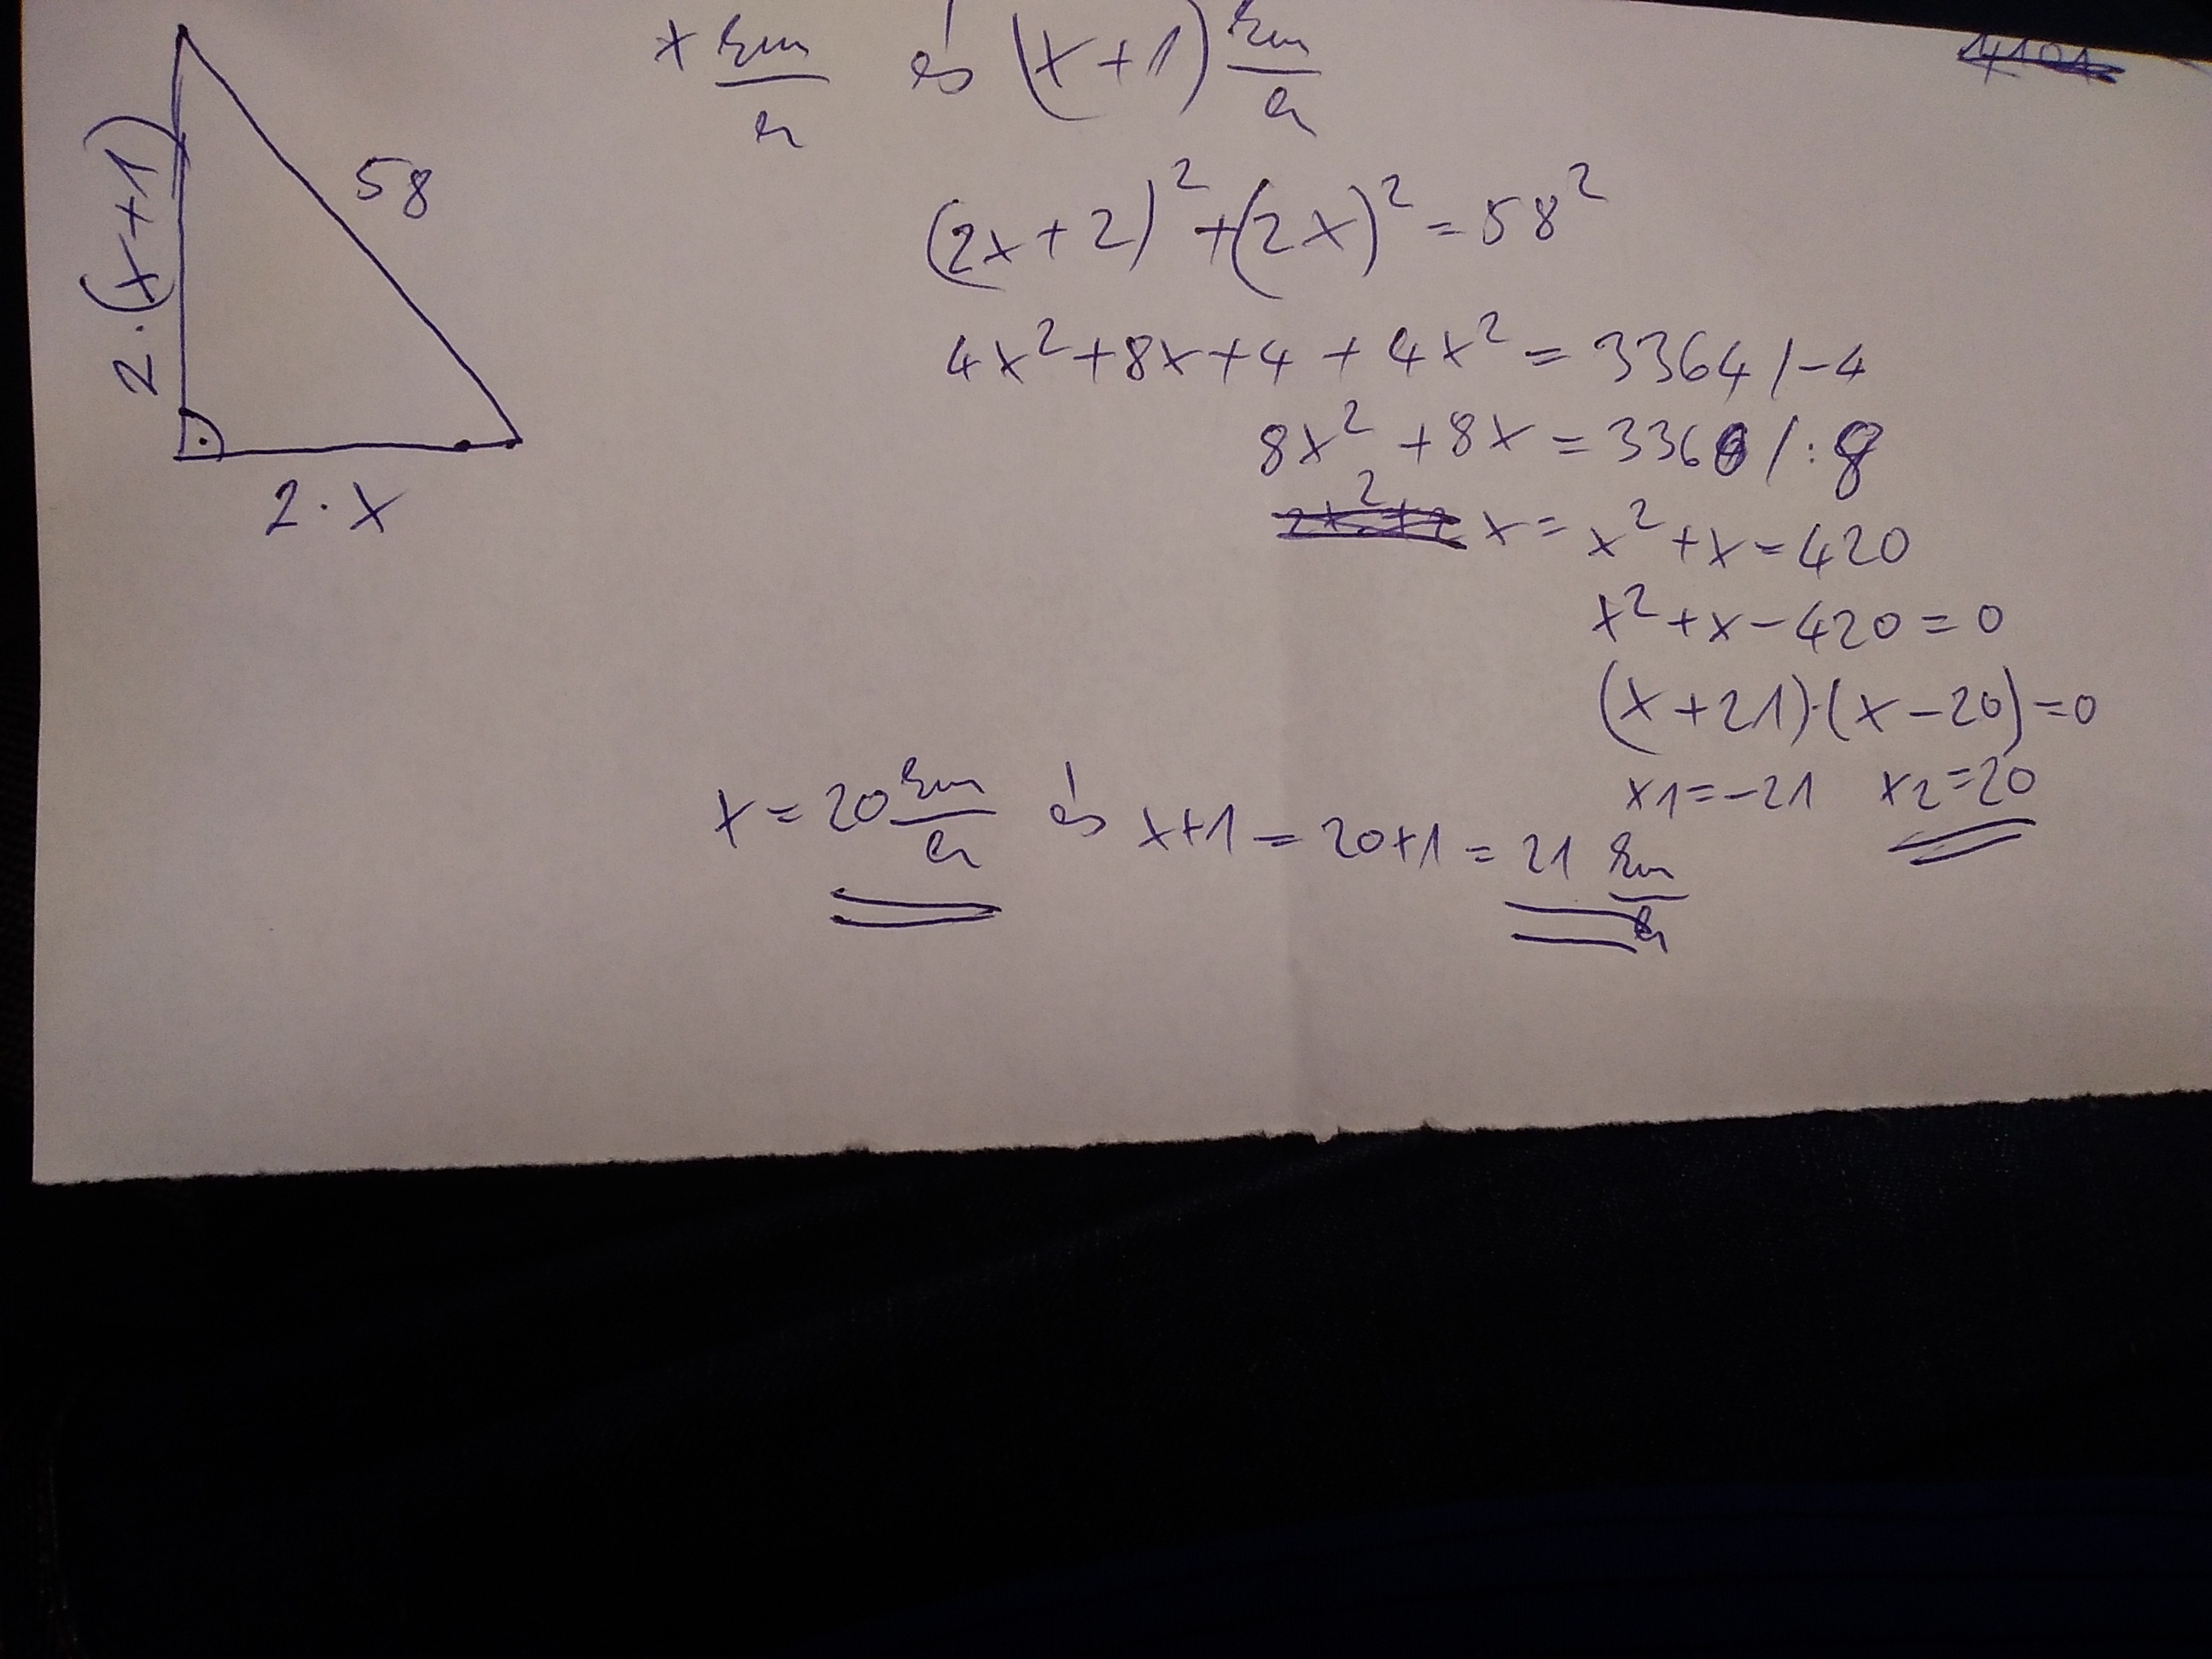 x km/h és (x+1) km/h
2·(x+1)
58
2·x
(2x+2)²+(2x)²=58²
4x²+8x+4+4x²=3364 /-4
8x²+8x=3360 /:8
x= x²+x=420
x²+x-420=0
(x+21)·(x-20)=0
x1=-21 x2=20
x=20 km/h és x+1=20+1=21 km/h